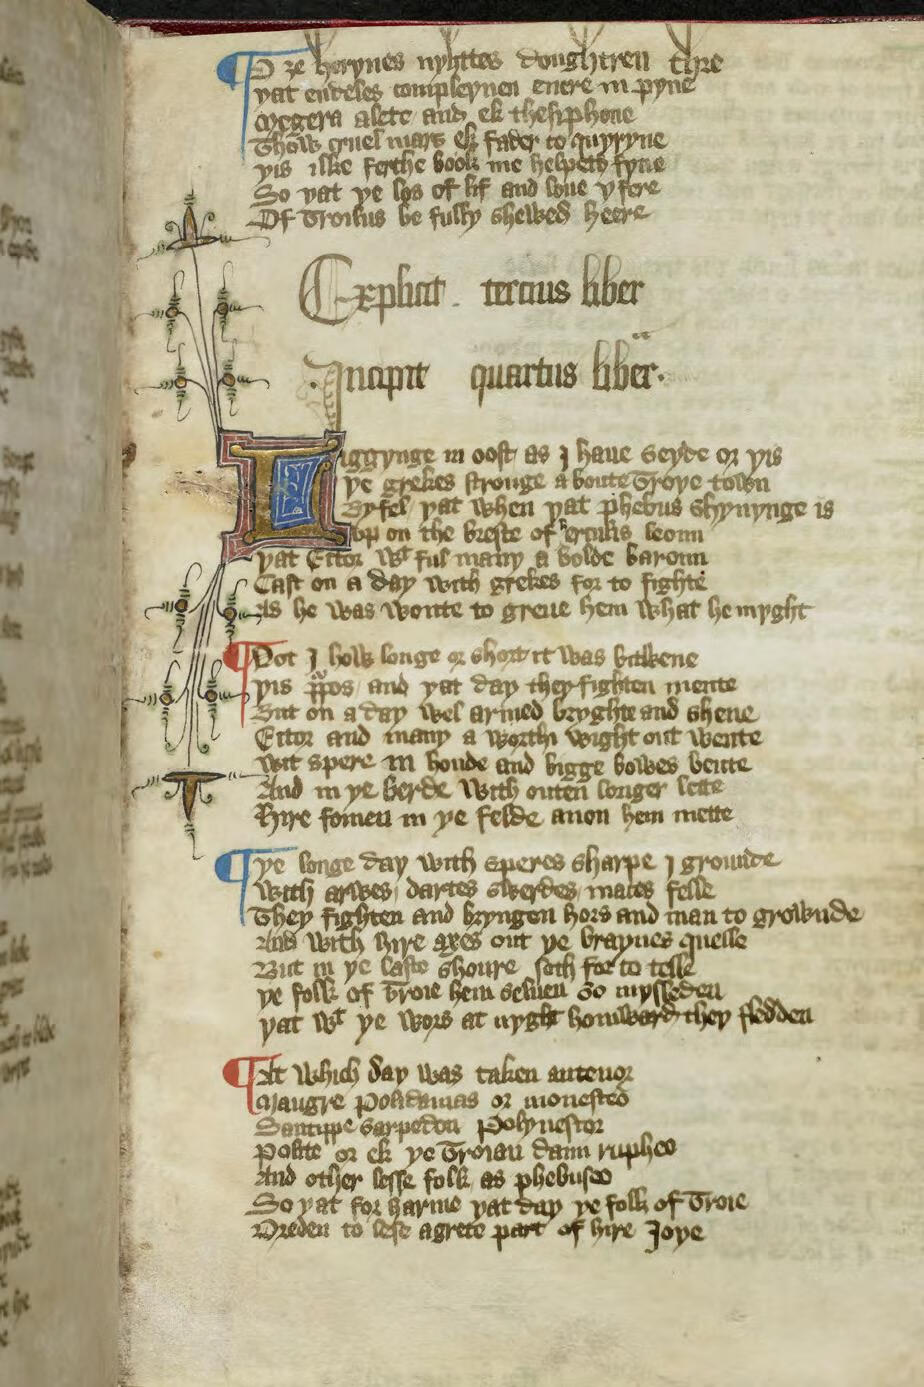 O ȝe herynes nyhttes doughtren thre
yat endeles compleynen euere in pyne
Megera alete and ek thesiphone
Thow cruel mars ek fader to quyryne
yis ilke ferthe book me helpeth fyne
So yat ye los of lif and loue yfere
Of Troilus be fully shewed heere
Explicit tercius liber
Incipit quartus liber.
Liggynge in oost as I haue seyde or yis
ye grekes stronge aboute Troye town
Byfel yat when yat phebus shynynge is
vp on the breste of hercules leoun
yat Ector wt ful many a bolde baroun
Cast on a day with grekes for to fighte
As he was wonte to greue hem what he myght
Not I how longe or short it was bitwene
yis ppos and yat day they fighten mente
But on a day wel armed bryghte and shene
Ector and many a worthi wight out wente
wit spere in honde and bigge bowes bente
And in ye berde with outen longer lette
Hire fomen in ye felde anon hem mette
ye longe day with speres sharpe I grounde
with arwes dartes swerdes maces felle
They fighten and bryngen hors and man to grownde
And with hire axes out ye braynes quelle
But in ye laste shoure soth for to telle
ye folk of Troie hem seluen so mysleden
yat wt ye wors at nyght homward they fledden
At which day was taken antenor
Maugre Polidamas or monesteo
Santippe sarpedon Polynestor
Polite or ek ye Troian daun rupheo
And other lesse folk as phebuseo
So yat for harme yat day ye folk of Troie
Dreden to lese a grete part of hire Joye